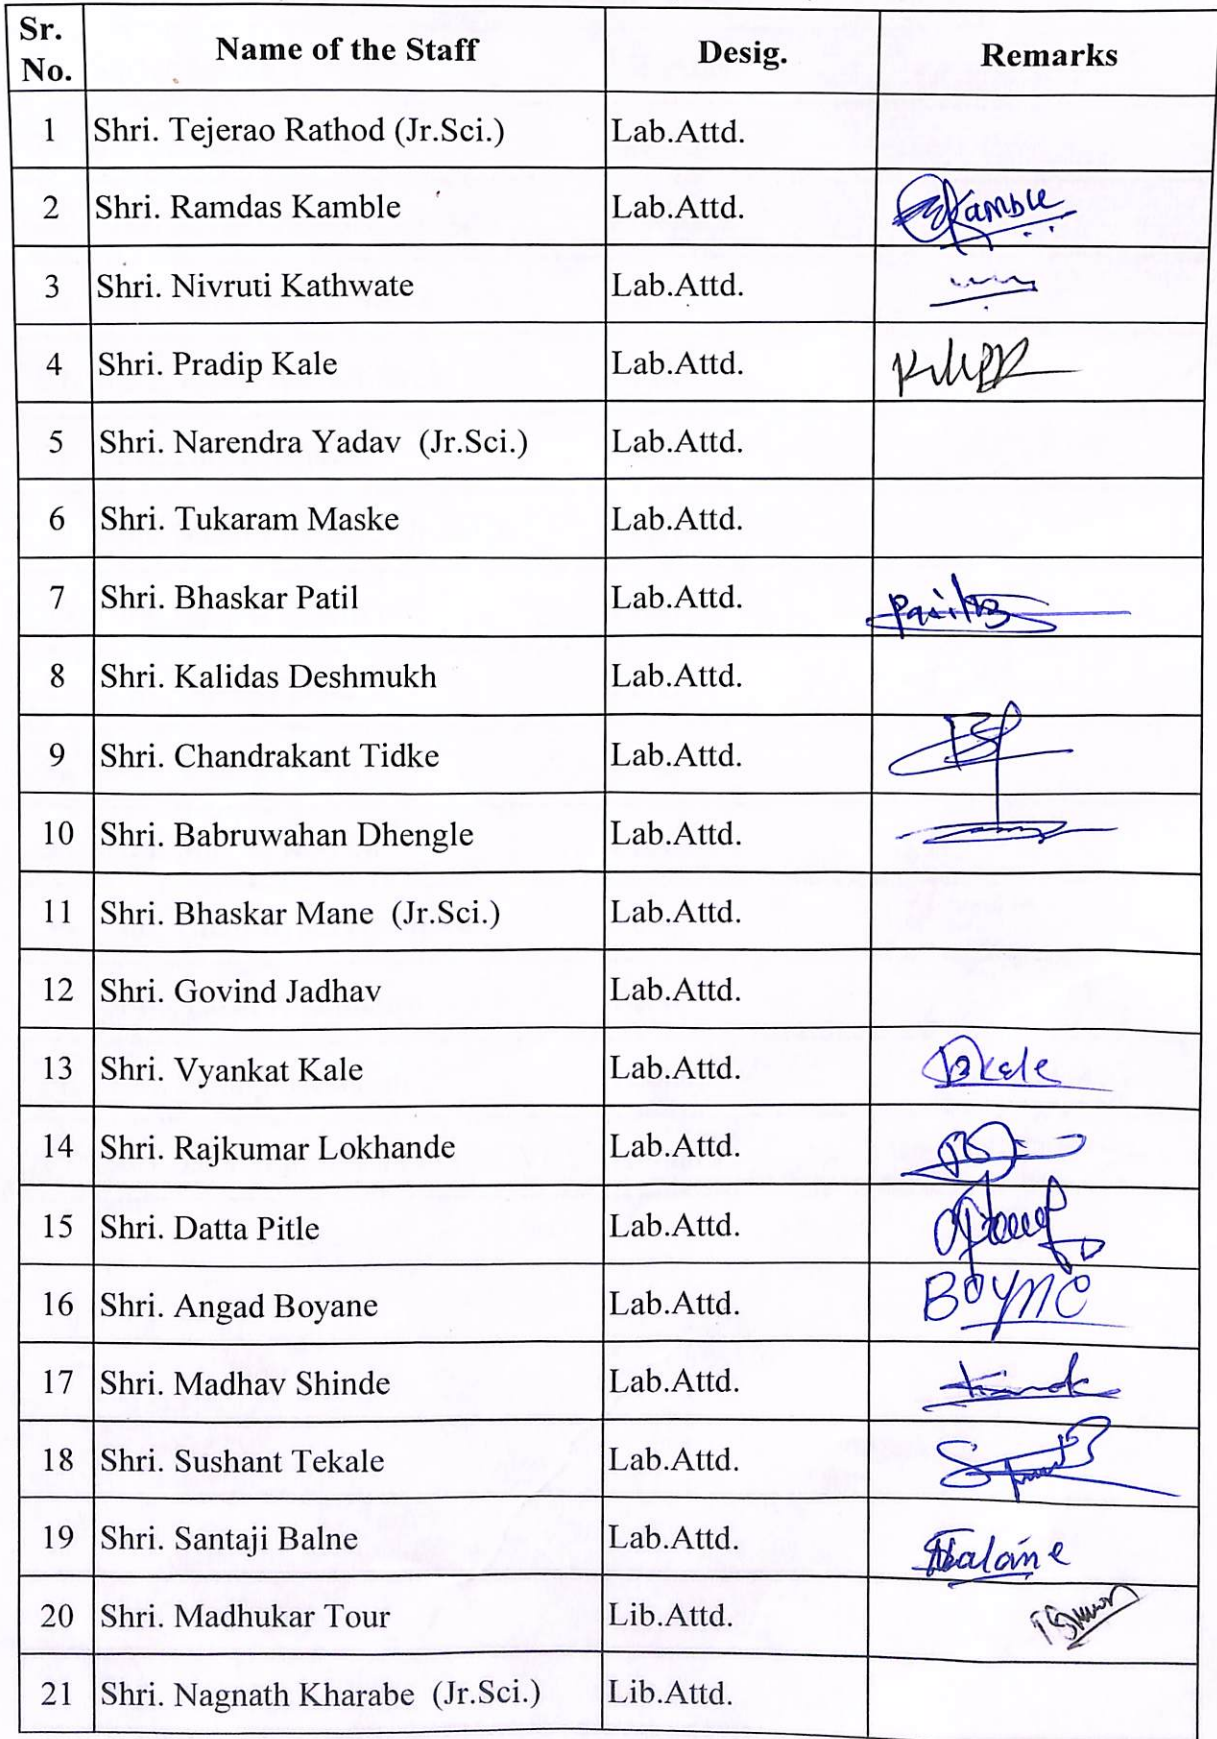 Sr. No. Name of the Staff Desig. Remarks
1 Shri. Tejerao Rathod (Jr.Sci.) Lab.Attd.
2 Shri. Ramdas Kamble Lab.Attd. Kamble
3 Shri. Nivruti Kathwate Lab.Attd.
4 Shri. Pradip Kale Lab.Attd.
5 Shri. Narendra Yadav (Jr.Sci.) Lab.Attd.
6 Shri. Tukaram Maske Lab.Attd.
7 Shri. Bhaskar Patil Lab.Attd.
8 Shri. Kalidas Deshmukh Lab.Attd.
9 Shri. Chandrakant Tidke Lab.Attd.
10 Shri. Babruwahan Dhengle Lab.Attd.
11 Shri. Bhaskar Mane (Jr.Sci.) Lab.Attd.
12 Shri. Govind Jadhav Lab.Attd.
13 Shri. Vyankat Kale Lab.Attd. Kale
14 Shri. Rajkumar Lokhande Lab.Attd.
15 Shri. Datta Pitle Lab.Attd.
16 Shri. Angad Boyane Lab.Attd.
17 Shri. Madhav Shinde Lab.Attd.
18 Shri. Sushant Tekale Lab.Attd.
19 Shri. Santaji Balne Lab.Attd.
20 Shri. Madhukar Tour Lib.Attd.
21 Shri. Nagnath Kharabe (Jr.Sci.) Lib.Attd.